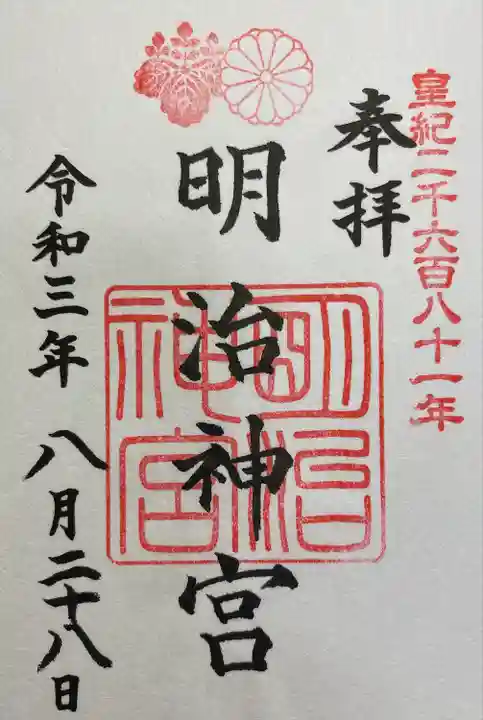 皇紀二千六百八十一年
奉拝
明治神宮
明治神宮
令和三年 八月二十八日